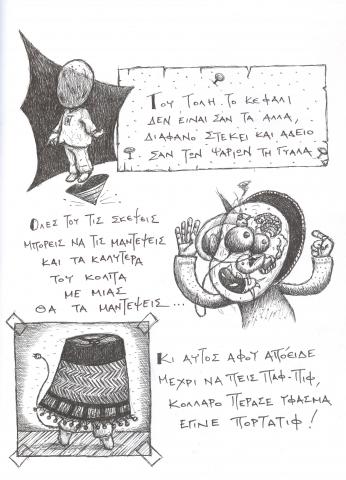 ΤΟΥ ΤΟΛΗ ΤΟ ΚΕΦΑΛΙ
ΔΕΝ ΕΙΝΑΙ ΣΑΝ ΤΑ ΑΛΛΑ,
ΔΙΑΦΑΝΟ ΣΤΕΚΕΙ ΚΑΙ ΑΔΕΙΟ
ΣΑΝ ΤΩΝ ΨΑΡΙΩΝ ΤΗ ΓΥΑΛΑ.
ΟΛΕΣ ΤΟΥ ΤΙΣ ΣΚΕΨΕΙΣ
ΜΠΟΡΕΙΣ ΝΑ ΤΙΣ ΜΑΝΤΕΨΕΙΣ
ΚΑΙ ΤΑ ΚΑΛΥΤΕΡΑ
ΤΟΥ ΚΟΛΠΑ
ΜΕ ΜΙΑΣ
ΘΑ ΤΑ ΜΑΝΤΕΨΕΙΣ...
ΚΙ ΑΥΤΟΣ ΑΦΟΥ ΑΠΟΕΙΔΕ
ΜΕΧΡΙ ΝΑ ΠΕΙΣ ΠΑΦ-ΠΙΦ,
ΚΟΛΛΑΡΟ ΠΕΡΑΣΕ ΥΦΑΣΜΑ
ΕΓΙΝΕ ΠΟΡΤΑΤΙΦ!